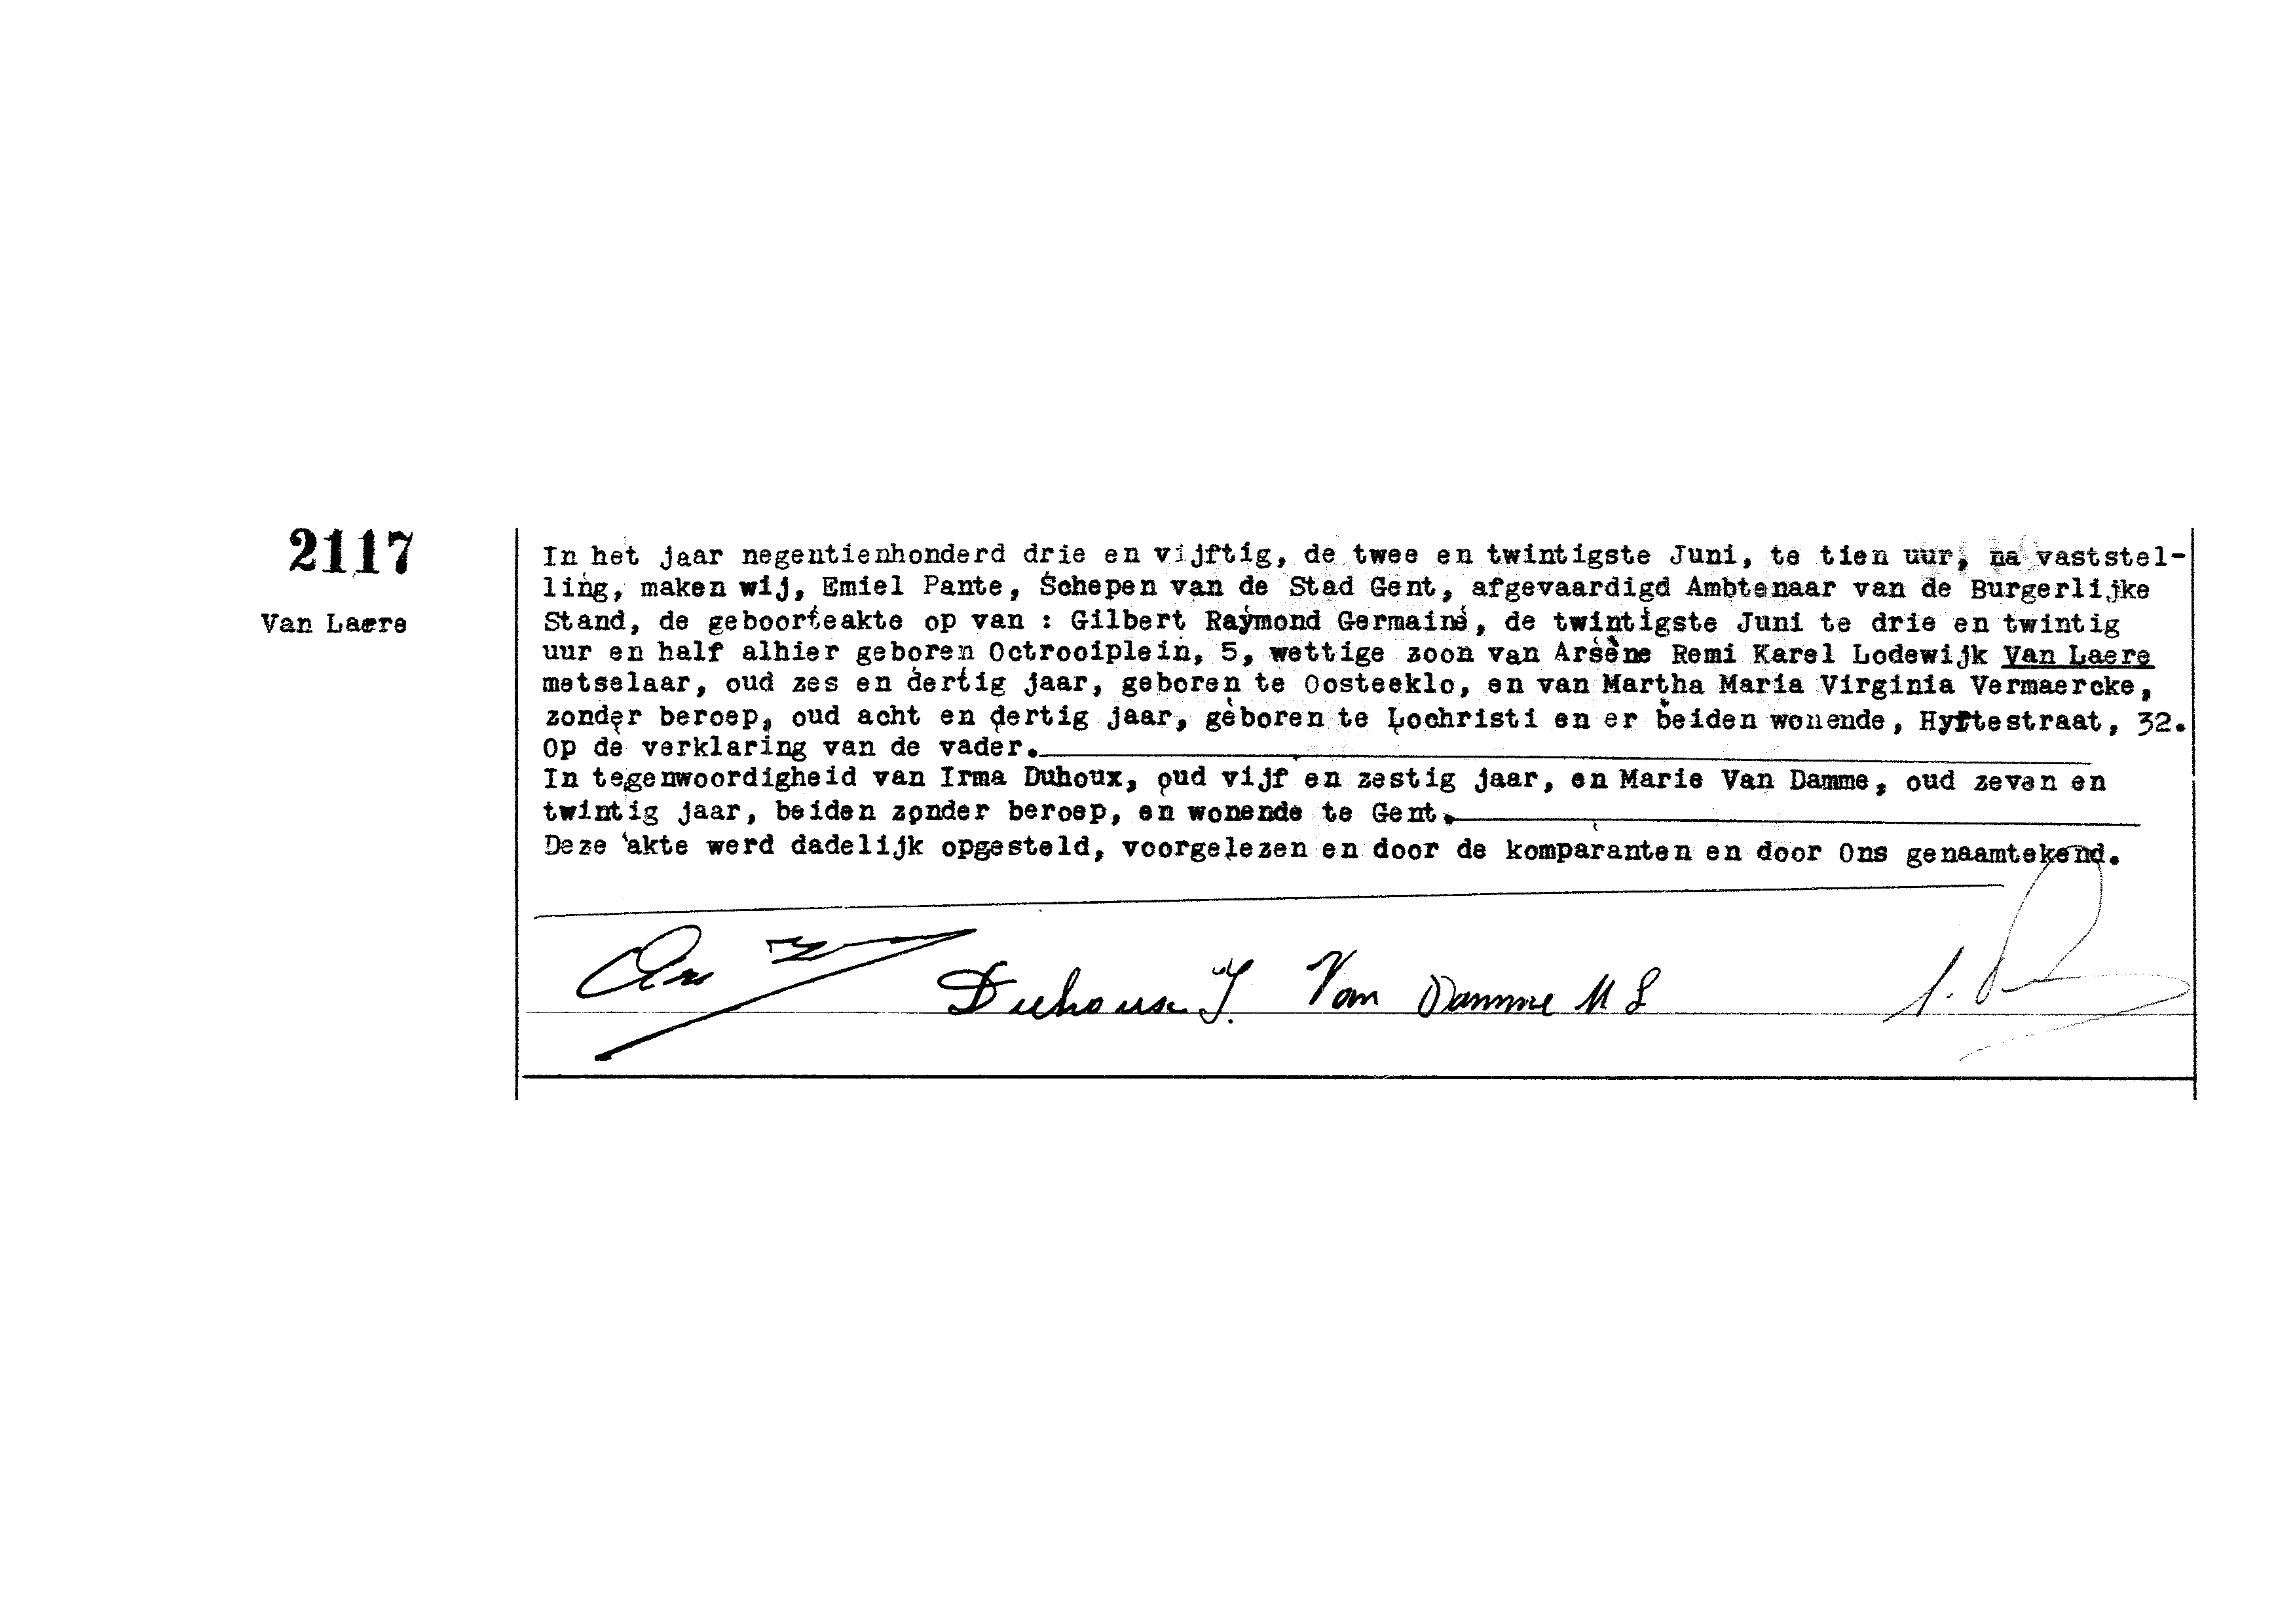 2117
Van Laere
In het jaar negentienhonderd drie en vijftig, de twee en twintigste Juni, te tien uur, na vaststel-
ling, maken wij, Emiel Pante, Schepen van de Stad Gent, afgevaardigd Ambtenaar van de Burgerlijke
Stand, de geboorteakte op van : Gilbert Raymond Germaine, de twintigste Juni te drie en twintig
uur en half alhier geboren Octrooiplein, 5, wettige zoon van Arsène Remi Karel Lodewijk Van Laere
metselaar, oud zes en dertig jaar, geboren te Oosteeklo, en van Martha Maria Virginia Vermaercke,
zonder beroep, oud acht en dertig jaar, geboren te Lochristi en er beiden wonende, Hyftestraat, 32.
Op de verklaring van de vader.
In tegenwoordigheid van Irma Duhoux, oud vijf en zestig jaar, en Marie Van Damme, oud zeven en
twintig jaar, beiden zonder beroep, en wonende te Gent.
Deze akte werd dadelijk opgesteld, voorgelezen en door de komparanten en door Ons genaamtekend.
Duhoux I. Van Damme M L